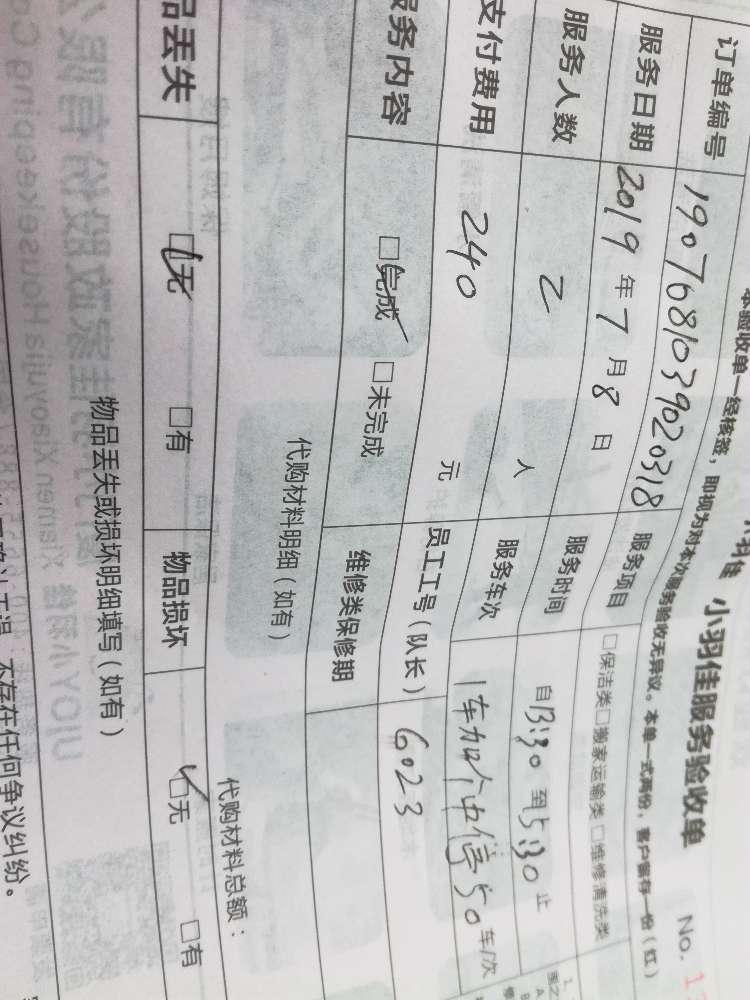 小羽佳服务验收单 No.
本验收单一经核签，即视为对本次服务验收无异议。本单一式两份，客户留存一份（红）
订单编号 1907681039020318 服务项目 □保洁类□搬家运输类□维修清洗类
服务日期 2019年7月8日 服务时间 自13:30至5:30止
服务人数 2 人 服务车次 1车加个中停50车/次
支付费用 240 元 员工工号（队长） 6023
服务内容 □完成 □未完成 维修类保修期
代购材料明细（如有） 代购材料总额：
品丢失 □无 □有 物品损坏 □无 □有
物品丢失或损坏明细填写（如有）
不存在任何争议纠纷。